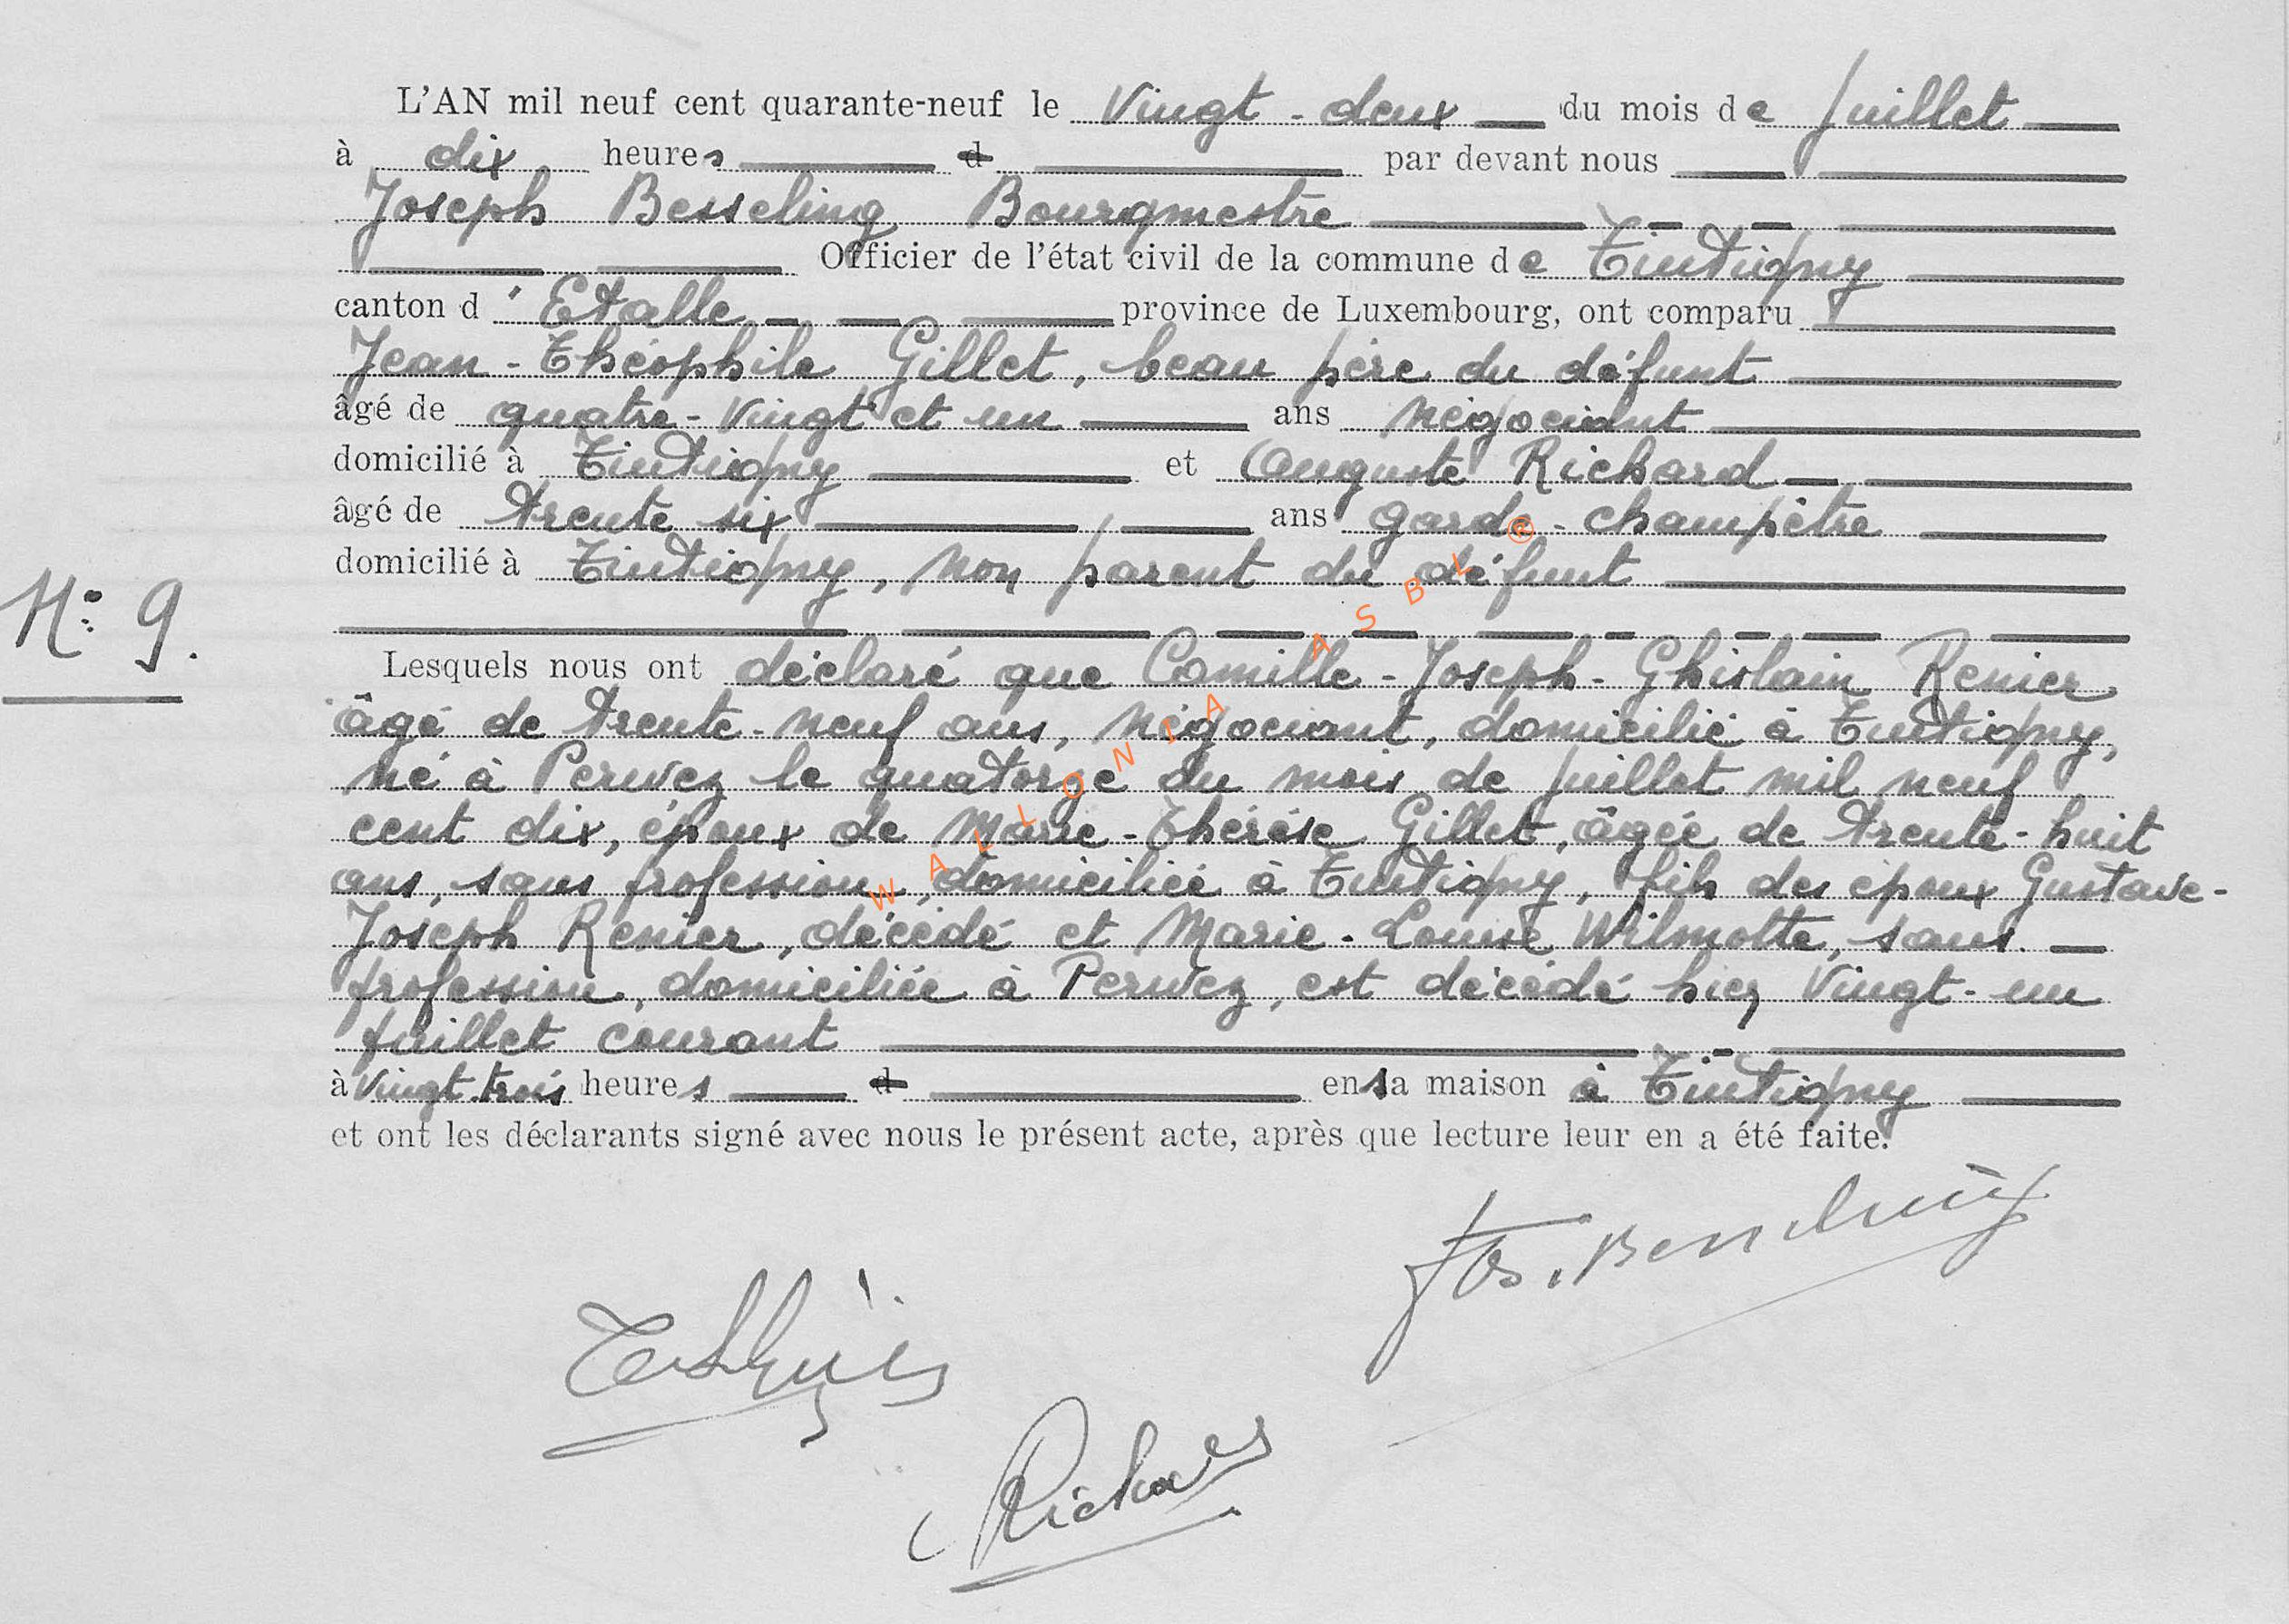 L'AN mil neuf cent quarante-neuf le Vingt-deux du mois de Juillet
à dix heures d par devant nous
Joseph Besseling Bourgmestre
Officier de l'état civil de la commune de Tintigny
canton d'Etalle province de Luxembourg, ont comparu
Jean-Théophile Gillet, beau père du défunt
âgé de quatre-Vingt et un ans négociant
domicilié à Tintigny et Auguste Richard
âgé de trente six ans garde-champêtre
domicilié à Tintigny, non parent du défunt
N° 9.
Lesquels nous ont déclaré que Camille-Joseph-Ghislain Renier
âgé de trente-neuf ans, négociant, domicilié à Tintigny,
né à Perwez le quatorze du mois de juillet mil neuf
cent dix, époux de Marie-Thérèse Gillet, âgée de trente-huit
ans, sans profession, domiciliée à Tintigny, fils des époux Gustave-
Joseph Renier, décédé et Marie-Louise Wilmotte, sans
profession, domiciliée à Perwez, est décédé hier Vingt-un
juillet courant
à Vingt-trois heures d en sa maison à Tintigny
et ont les déclarants signé avec nous le présent acte, après que lecture leur en a été faite.
Jos. Besseling
Richard
WALLONIA ASBL ®